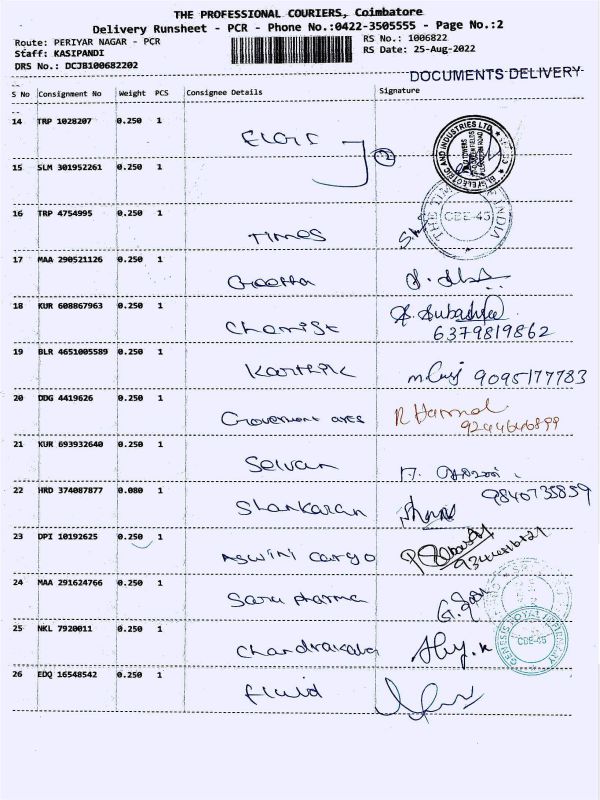 THE PROFESSIONAL COURIERS, Coimbatore
Delivery Runsheet - PCR - Phone No.:0422-3505555 - Page No.:2
Route: PERIYAR NAGAR - PCR
RS No.: 1006822
Staff: KASIPANDI
RS Date: 25-Aug-2022
DRS No.: DCJB100682202
DOCUMENTS DELIVERY
S No Consignment No Weight PCS Consignee Details Signature
14 TRP 1028207 0.250 1
15 SLM 301952261 0.250 1
16 TRP 4754995 0.250 1 Times CDE-45
17 MAA 290521126 0.250 1 Geetha
18 KUR 608867963 0.250 1 S. Subashree
6379819862
19 BLR 4651005589 0.250 1 Karthik 9095177783
20 DDG 4419626 0.250 1
21 KUR 693932640 0.250 1 Selvan
22 HRD 374087877 0.080 1 Shankaran 9840735859
23 DPI 10192625 0.250 1 Aswini cargo
24 MAA 291624766 0.250 1 Saru pharma
25 NKL 7920011 0.250 1 Chandrakala CDE-45
26 EDQ 16548542 0.250 1 fluid